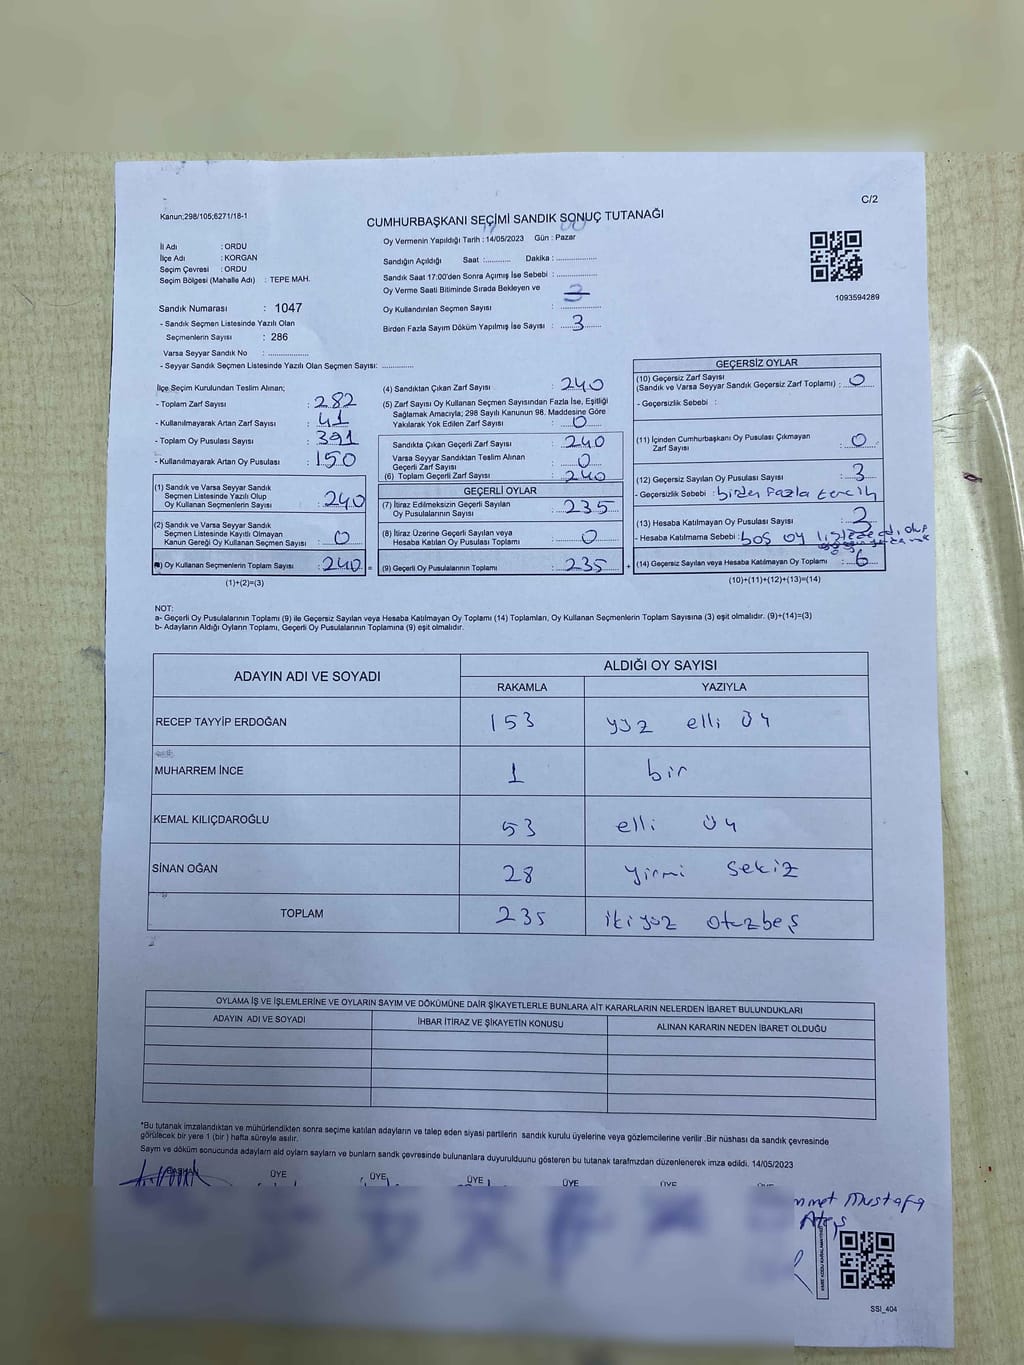 C/2
Kanun;298/105;6271/18-1
CUMHURBAŞKANI SEÇİMİ SANDIK SONUÇ TUTANAĞI
İl Adı : ORDU
İlçe Adı : KORGAN
Seçim Çevresi : ORDU
Seçim Bölgesi (Mahalle Adı) : TEPE MAH.
Oy Vermenin Yapıldığı Tarih : 14/05/2023 Gün : Pazar
Sandığın Açıldığı Saat :........ Dakika :............
Sandık Saat 17:00'den Sonra Açımış İse Sebebi :............
Oy Verme Saati Bitiminde Sırada Bekleyen ve
Oy Kullandırılan Seçmen Sayısı :............
Birden Fazla Sayım Döküm Yapılmış İse Sayısı : 3
1093594289
Sandık Numarası : 1047
- Sandık Seçmen Listesinde Yazılı Olan
Seçmenlerin Sayısı : 286
Varsa Seyyar Sandık No :............
- Seyyar Sandık Seçmen Listesinde Yazılı Olan Seçmen Sayısı:............
İlçe Seçim Kurulundan Teslim Alınan;
- Toplam Zarf Sayısı : 282
- Kullanılmayarak Artan Zarf Sayısı : 41
- Toplam Oy Pusulası Sayısı : 391
- Kullanılmayarak Artan Oy Pusulası : 150
(1) Sandık ve Varsa Seyyar Sandık
Seçmen Listesinde Yazılı Olup
Oy Kullanan Seçmenlerin Sayısı : 240
(2) Sandık ve Varsa Seyyar Sandık
Seçmen Listesinde Kayıtlı Olmayan
Kanun Gereği Oy Kullanan Seçmen Sayısı : 0
Oy Kullanan Seçmenlerin Toplam Sayısı : 240 =
(1)+(2)=(3)
(4) Sandıktan Çıkan Zarf Sayısı : 240
(5) Zarf Sayısı Oy Kullanan Seçmen Sayısından Fazla İse, Eşitliği
Sağlamak Amacıyla; 298 Sayılı Kanunun 98. Maddesine Göre
Yakılarak Yok Edilen Zarf Sayısı : 0
Sandıkta Çıkan Geçerli Zarf Sayısı : 240
Varsa Seyyar Sandıktan Teslim Alınan
Geçerli Zarf Sayısı : 0
(6) Toplam Geçerli Zarf Sayısı : 240
GEÇERLİ OYLAR
(7) İtiraz Edilmeksizin Geçerli Sayılan
Oy Pusulalarının Sayısı : 235
(8) İtiraz Üzerine Geçerli Sayılan veya
Hesaba Katılan Oy Pusulası Toplamı : 0
(9) Geçerli Oy Pusulalarının Toplamı : 235 +
GEÇERSİZ OYLAR
(10) Geçersiz Zarf Sayısı
(Sandık ve Varsa Seyyar Sandık Geçersiz Zarf Toplamı) : 0
- Geçersizlik Sebebi :
(11) İçinden Cumhurbaşkanı Oy Pusulası Çıkmayan
Zarf Sayısı : 0
(12) Geçersiz Sayılan Oy Pusulası Sayısı : 3
- Geçersizlik Sebebi : birden fazla tercih
(13) Hesaba Katılmayan Oy Pusulası Sayısı
- Hesaba Katılmama Sebebi : boş oy
(14) Geçersiz Sayılan veya Hesaba Katılmayan Oy Toplamı : 6
(10)+(11)+(12)+(13)=(14)
NOT:
a- Geçerli Oy Pusulalarının Toplamı (9) ile Geçersiz Sayılan veya Hesaba Katılmayan Oy Toplamı (14) Toplamları, Oy Kullanan Seçmenlerin Toplam Sayısına (3) eşit olmalıdır. (9)+(14)=(3)
b- Adayların Aldığı Oyların Toplamı, Geçerli Oy Pusulalarının Toplamına (9) eşit olmalıdır.
ADAYIN ADI VE SOYADI ALDIĞI OY SAYISI
RAKAMLA YAZIYLA
RECEP TAYYİP ERDOĞAN 153 yüz elli üç
MUHARREM İNCE 1 bir
KEMAL KILIÇDAROĞLU 53 elli üç
SİNAN OĞAN 28 yirmi sekiz
TOPLAM 235 ikiyüz otuzbeş
OYLAMA İŞ VE İŞLEMLERİNE VE OYLARIN SAYIM VE DÖKÜMÜNE DAİR ŞİKAYETLERLE BUNLARA AİT KARARLARIN NELERDEN İBARET BULUNDUKLARI
ADAYIN ADI VE SOYADI İHBAR İTİRAZ VE ŞİKAYETİN KONUSU ALINAN KARARIN NEDEN İBARET OLDUĞU
*Bu tutanak imzalandıktan ve mühürlendikten sonra seçime katılan adayların ve talep eden siyasi partilerin sandık kurulu üyelerine veya gözlemcilerine verilir .Bir nüshası da sandık çevresinde
görülecek bir yere 1 (bir ) hafta süreyle asılır.
Sayım ve döküm sonucunda adayların ald oyların sayların ve bunların sandk çevresinde bulunanlara duyurulduunu gösteren bu tutanak tarafmzdan düzenlenerek imza edildi. 14/05/2023
BAŞKAN ÜYE ÜYE ÜYE ÜYE ÜYE
mmet Mustafa
Ateş
SSI_404